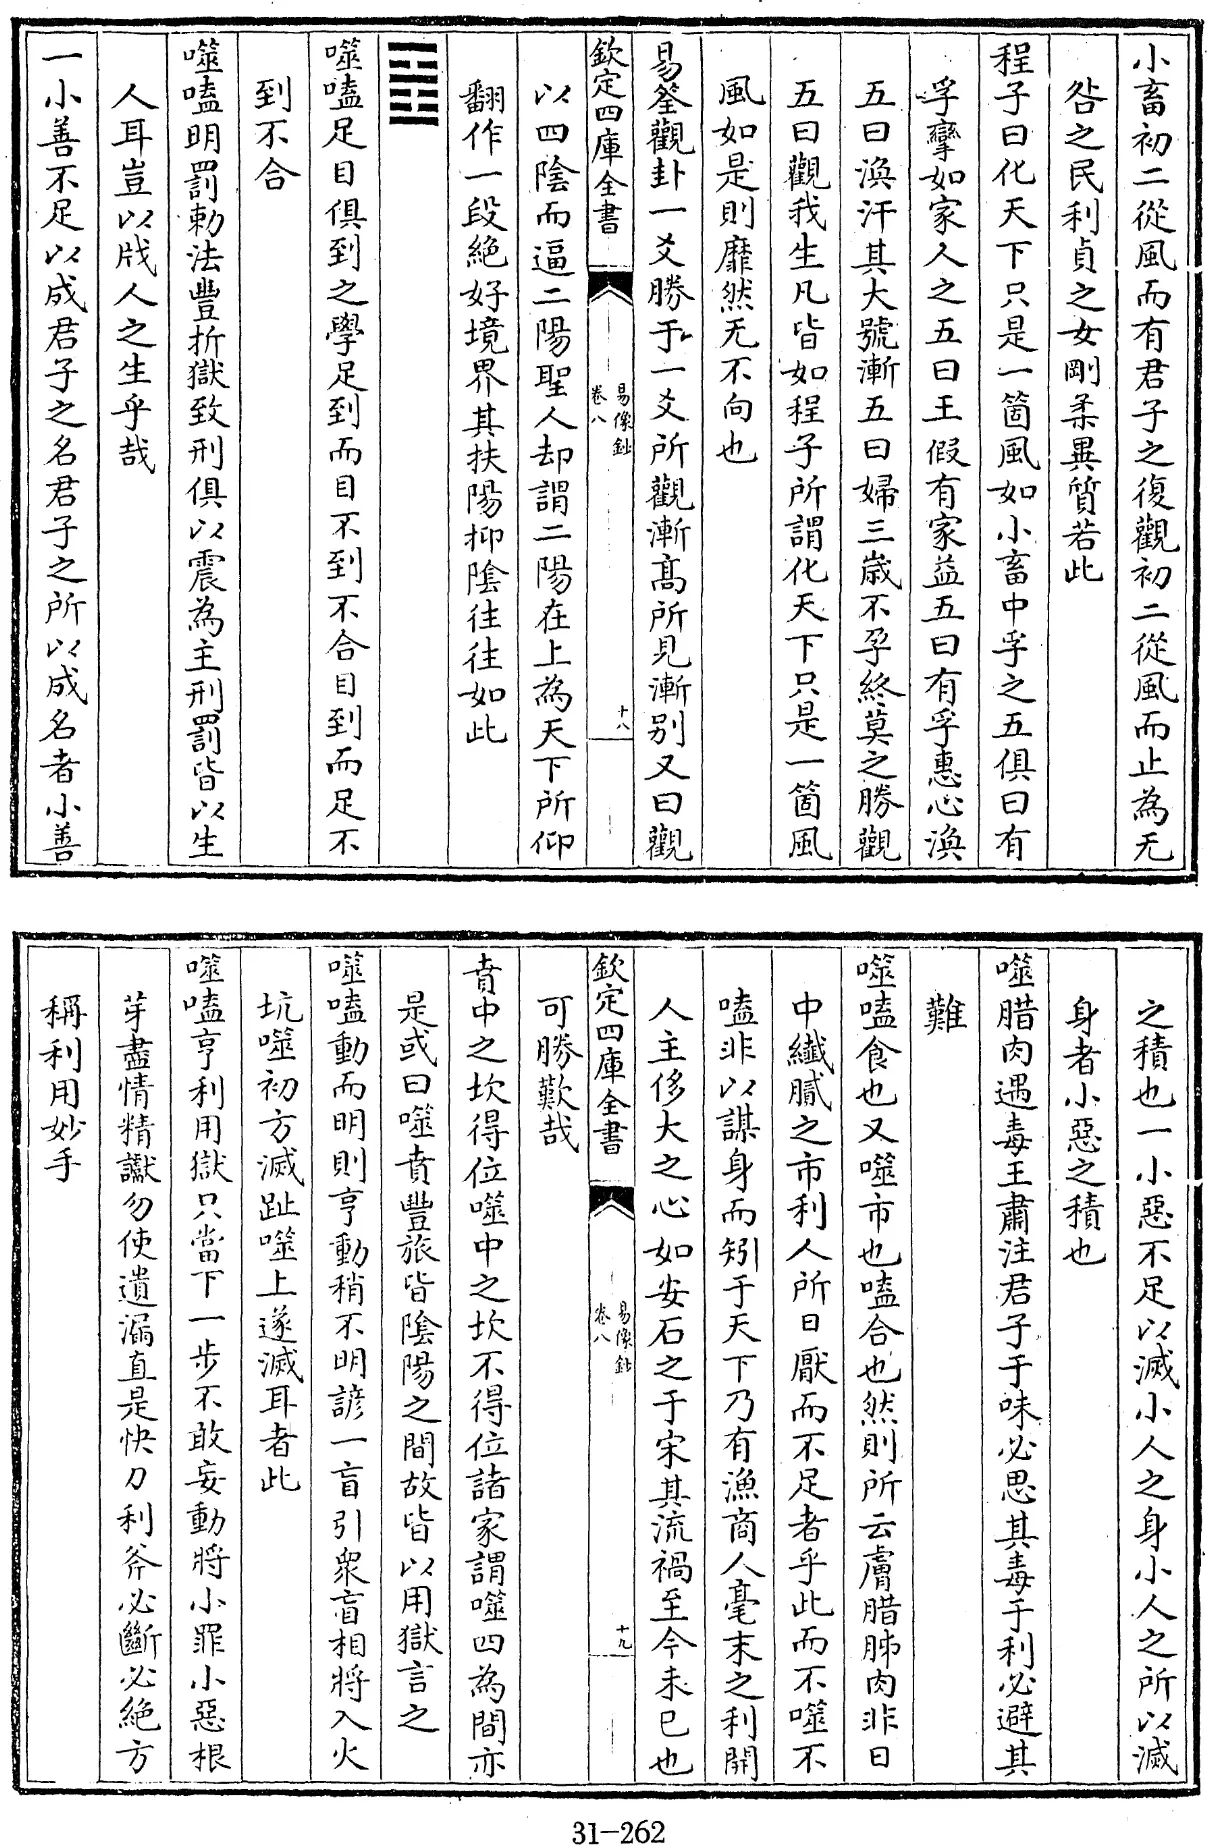 小畜初二從風而有君子之復觀初二從風而止為无
咎之民利貞之女剛柔異質若此
程子曰化天下只是一箇風如小畜中孚之五俱曰有
孚攣如家人之五曰王假有家益五曰有孚惠心渙
五曰渙汗其大號漸五曰婦三歲不孕終莫之勝觀
五曰觀我生凡皆如程子所謂化天下只是一箇風
風如是則靡然无不向也
易筌觀卦一爻勝于一爻所觀漸髙所見漸别又曰觀
欽定四庫全書
易像鈔
卷八
十八
以四陰而逼二陽聖人却謂二陽在上為天下所仰
翻作一段絶好境界其扶陽抑隂往往如此
䷔
噬嗑足目俱到之學足到而目不到不合目到而足不
到不合
噬嗑明罰勅法豐折獄致刑俱以震為主刑罰皆以生
人耳豈以戕人之生乎哉
一小善不足以成君子之名君子之所以成名者小善
之積也一小惡不足以滅小人之身小人之所以滅
身者小惡之積也
噬腊肉遇毒王肅注君子于味必思其毒于利必避其
難
噬嗑食也又噬市也嗑合也然則所云膚腊胏肉非日
中纎膩之市利人所日厭而不足者乎此而不噬不
嗑非以謀身而矧于天下乃有漁商人毫末之利開
人主侈大之心如安石之于宋其流禍至今未已也
欽定四庫全書
易像鈔
卷八
十九
可勝歎哉
賁中之坎得位噬中之坎不得位諸家謂噬四為間亦
是或曰噬賁豐旅皆隂陽之間故皆以用獄言之
噬嗑動而明則亨動稍不明諺一盲引衆盲相將入火
坑噬初方滅趾噬上遂滅耳者此
噬嗑亨利用獄只當下一步不敢妄動將小罪小惡根
芽盡情精讞勿使遺漏直是快刀利斧必斷必絶方
稱利用妙手
31-262